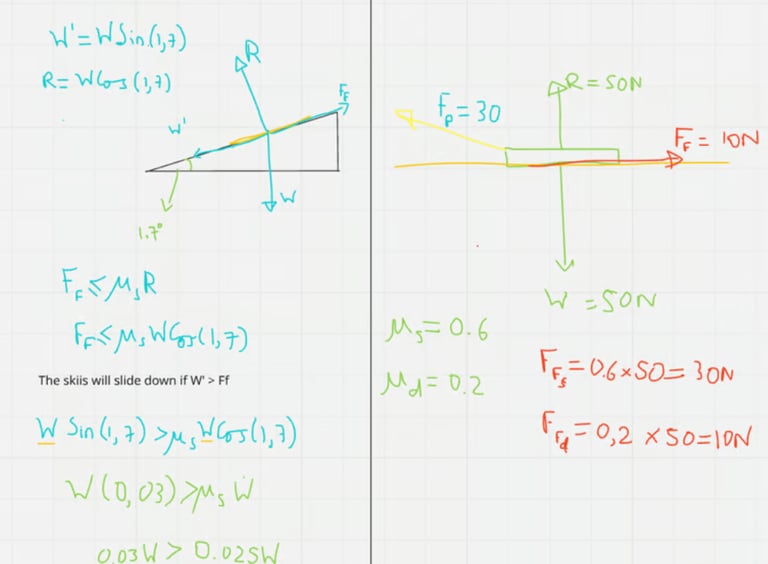 W' = W Sin(1,7)
R = W Cos(1,7)
R
F_F
W'
W
1.7°
F_F ≤ μ_s R
F_F ≤ μ_s W Cos(1,7)
The skiis will slide down if W' > Ff
W Sin(1,7) > μ_s W Cos(1,7)
W(0,03) > μ_s W
0.03W > 0.025W
R = 50N
F_p = 30
F_F = 10N
W = 50N
μ_s = 0.6
μ_d = 0.2
F_Fs = 0.6 × 50 = 30N
F_Fd = 0,2 × 50 = 10N